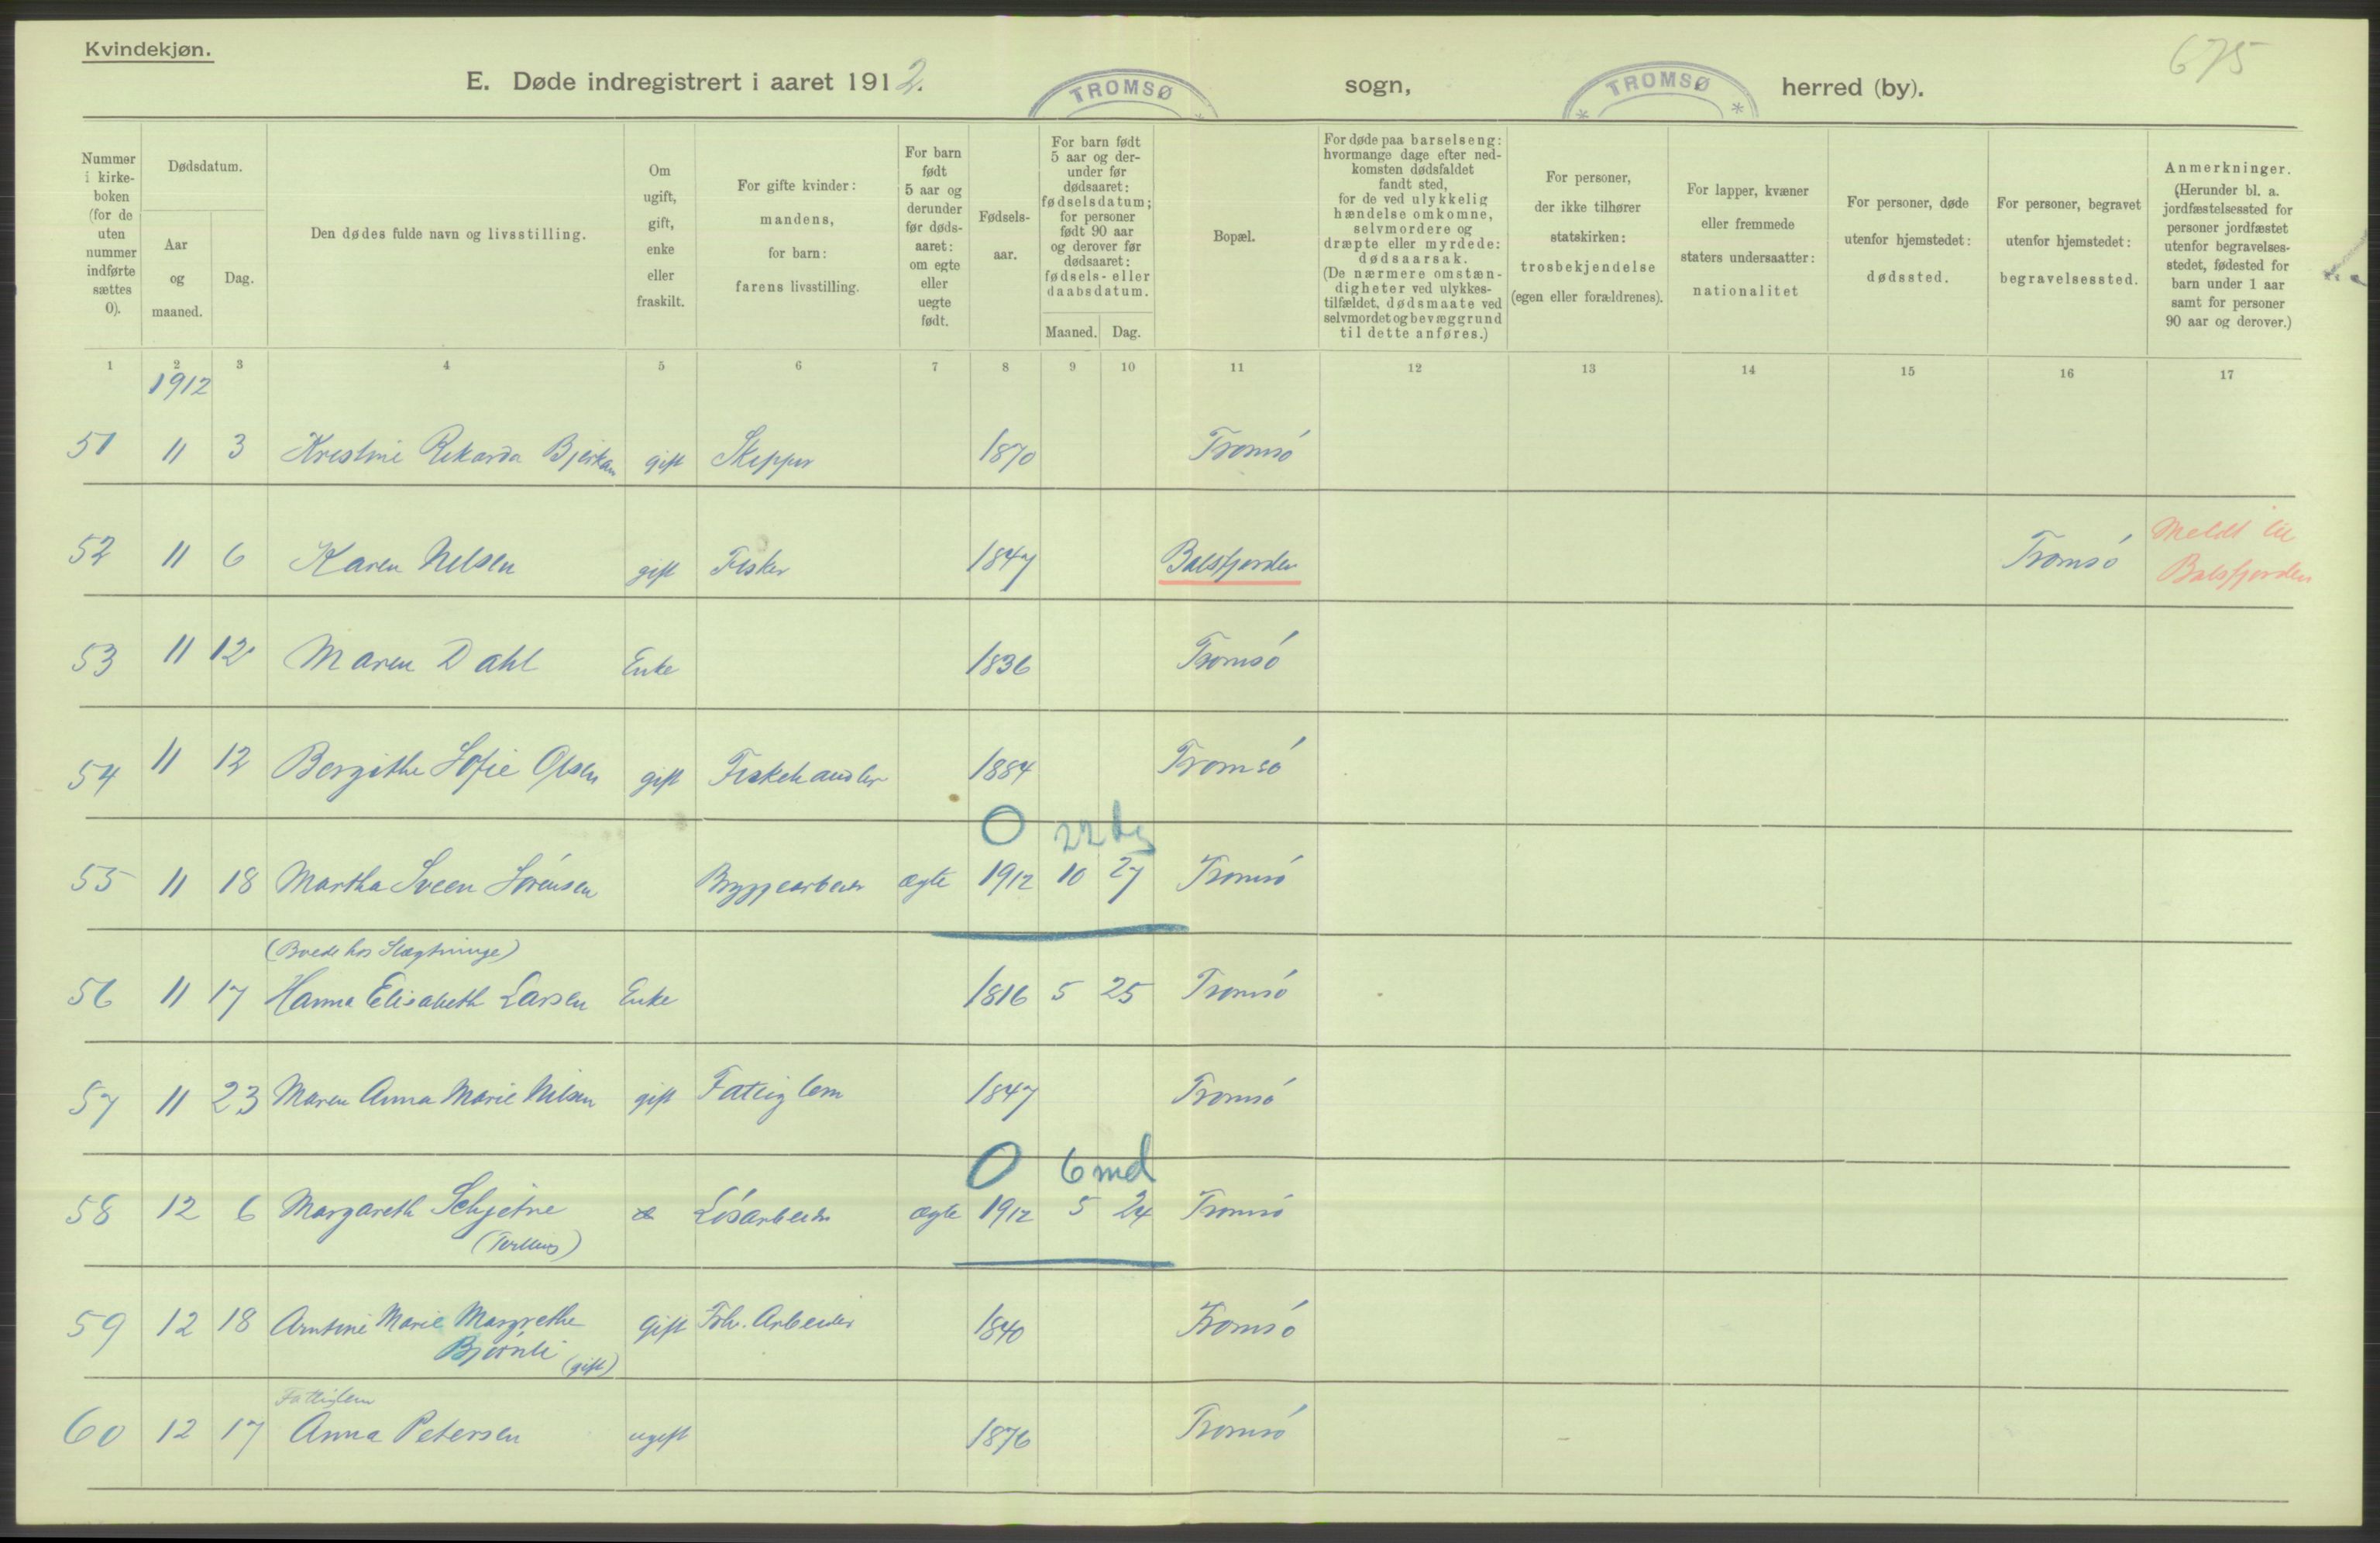 Kvindekjøn.
675
E. Døde indregistrert i aaret 1912. TROMSØ sogn, * TROMSØ * herred (by).
Nummer i kirke-boken (for de uten nummer indførte sættes 0).
Dødsdatum.
Aar og maaned.
Dag.
Den dødes fulde navn og livsstilling.
Om ugift, gift, enke eller fraskilt.
For gifte kvinder: mandens, for barn: farens livsstilling.
For barn født 5 aar og derunder før døds-aaret: om egte eller uegte født.
Fødsels-aar.
For barn født 5 aar og der-under før dødsaaret: fødselsdatum; for personer født 90 aar og derover før dødsaaret: fødsels- eller daabsdatum.
Maaned. Dag.
Bopæl.
For døde paa barselseng: hvormange dage efter ned-komsten dødsfaldet fandt sted, for de ved ulykkelig hændelse omkomne, selvmordere og dræpte eller myrdede: dødsaarsak. (De nærmere omstæn-digheter ved ulykkes-tilfældet, dødsmaate ved selvmordet og bevæggrund til dette anføres.)
For personer, der ikke tilhører statskirken: trosbekjendelse (egen eller forældrenes).
For lapper, kvæner eller fremmede staters undersaatter: nationalitet
For personer, døde utenfor hjemstedet: dødssted.
For personer, begravet utenfor hjemstedet: begravelsessted.
Anmerkninger. (Herunder bl. a. jordfæstelsessted for personer jordfæstet utenfor begravelses-stedet, fødested for barn under 1 aar samt for personer 90 aar og derover.)
1 2 3 4 5 6 7 8 9 10 11 12 13 14 15 16 17
1912
51 11 3 Kristine Rikarda Bjerkan gift Skipper 1870 Tromsö
52 11 6 Karen Nilsen gift Fisker 1847 Balsfjorden Tromsö Meldt til Balsfjorden
53 11 12 Maren Dahl Enke 1836 Tromsö
54 11 12 Bergithe Sofie Olsen gift Fiskehandler 1884 Tromsö
0 22 dg
55 11 18 Martha Sveen Sörensen Bryggearbeider ægte 1912 10 27 Tromsö
(Boede hos Slægtninge)
56 11 17 Hanna Elisabeth Larsen Enke 1816 5 25 Tromsö
57 11 23 Maren Anna Marie Nilsen gift Fattiglem 1847 Tromsö
0 6 md
58 12 6 Margareth Schjetne Lösarbeider ægte 1912 5 24 Tromsö
(Tvilling)
59 12 18 Arntine Marie Margrethe gift Fhv. Arbeider 1840 Tromsö
Bjørnli (gift)
Fattiglem
60 12 17 Anna Petersen ugift 1876 Tromsö